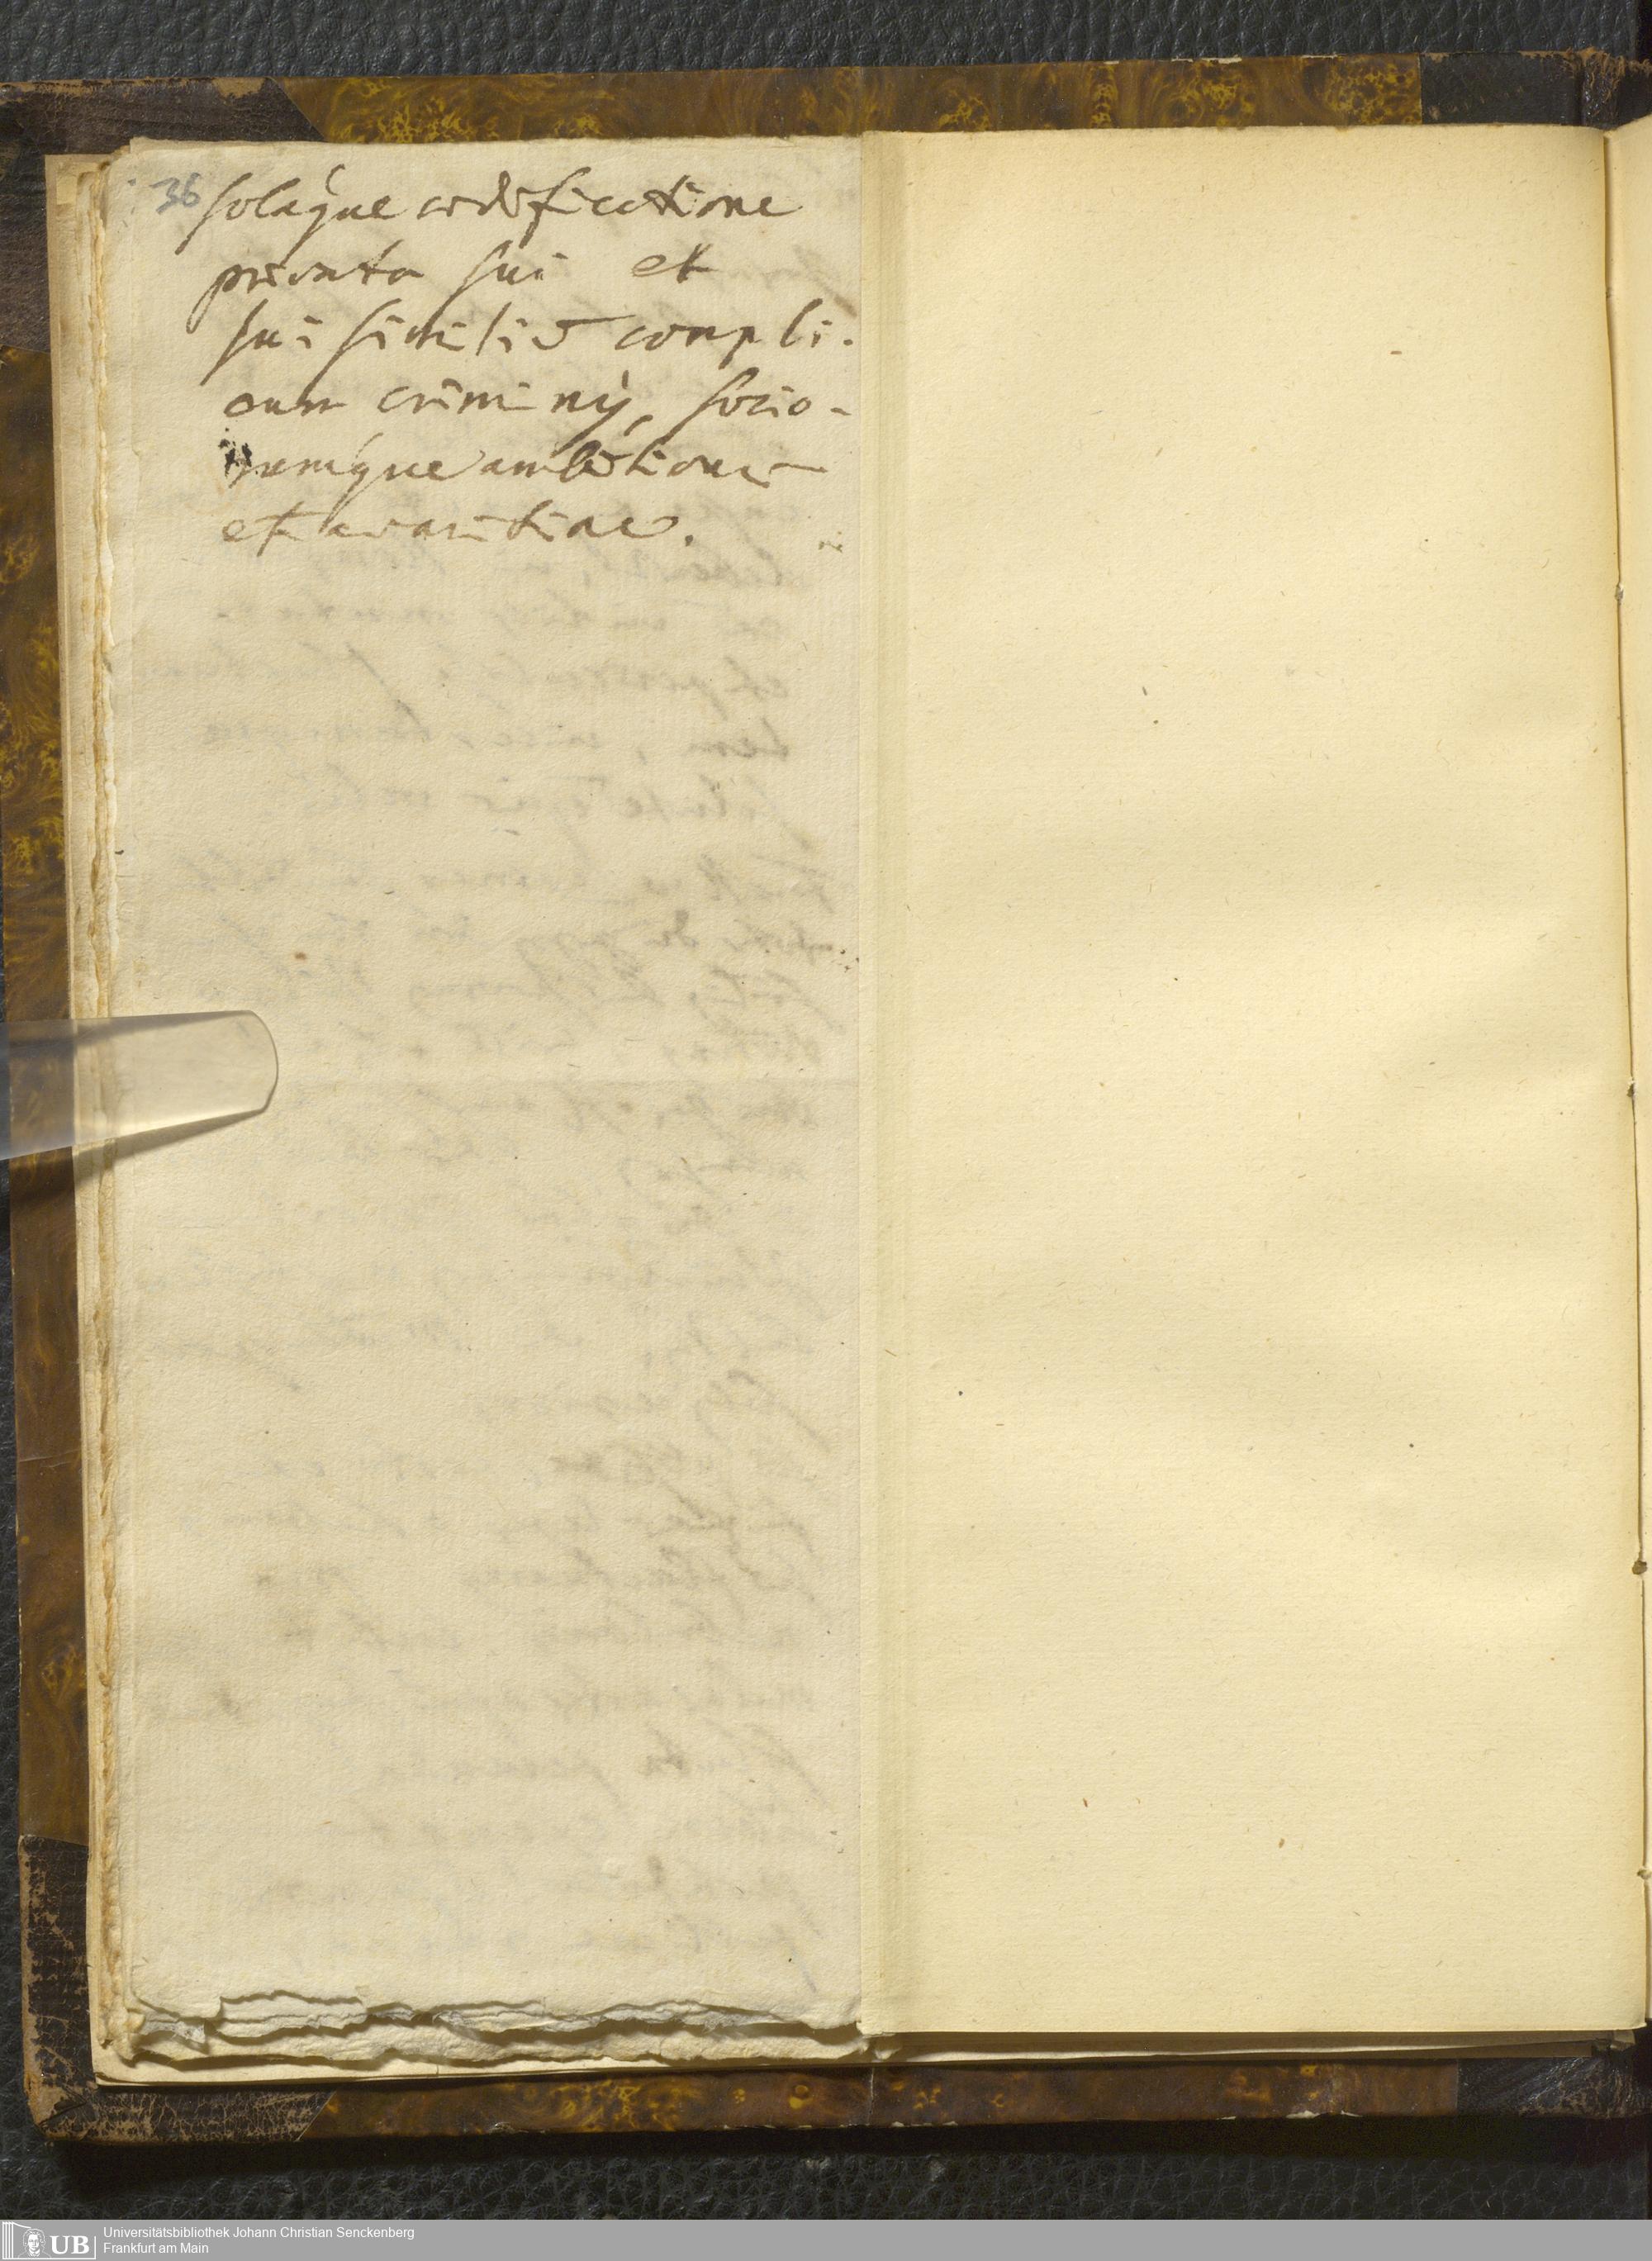 36 solaque aedificatione
privata sui et
sui similiū compli-
cum criminū, socio-
rumque ambitionis
et avaritiae.
UB Universitätsbibliothek Johann Christian Senckenberg
Frankfurt am Main